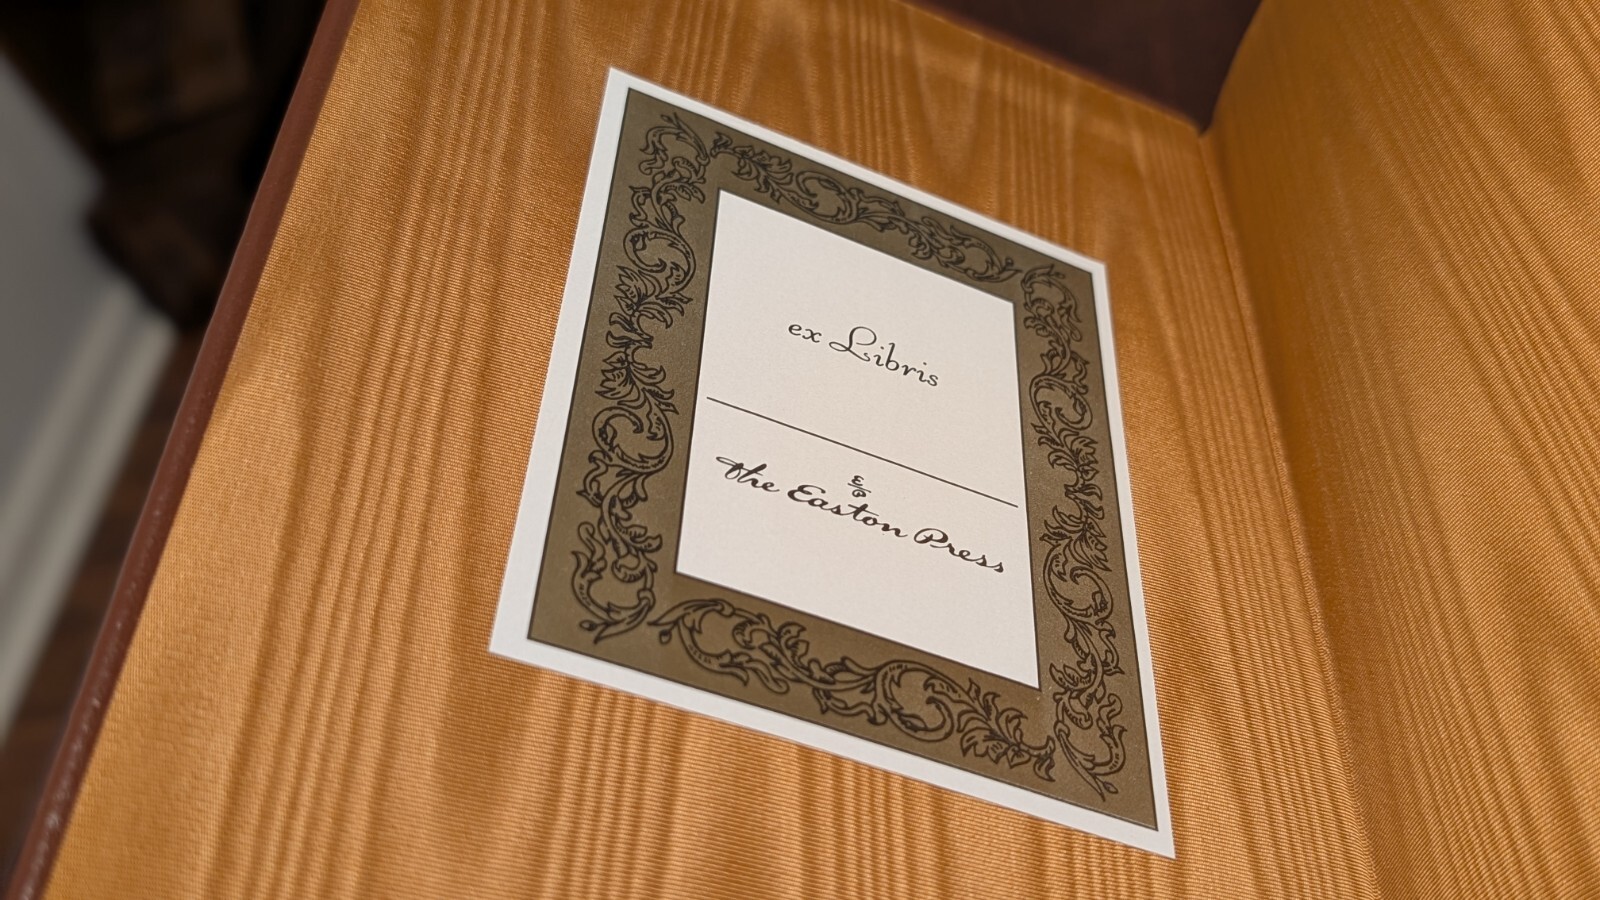 ex Libris
E
P
The Easton Press